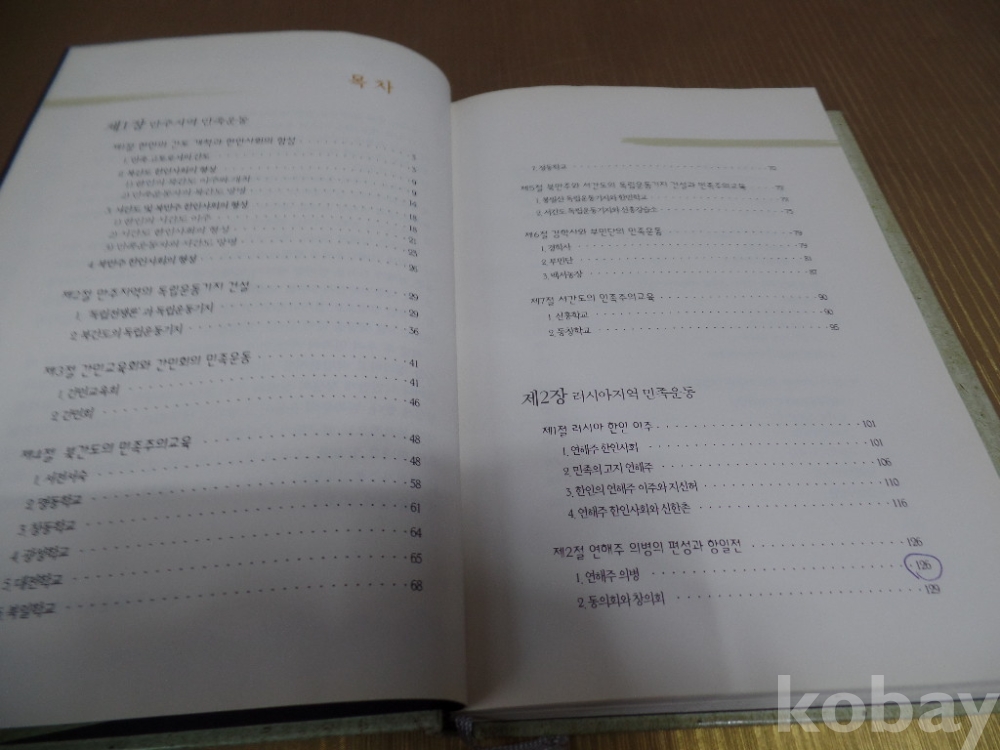 목 차
제1장 만주지역 민족운동
제1절 한인의 간도 개척과 한인사회의 형성
1. 민족 고토로서의 간도 5
2. 북간도 한인사회의 형성 5
1) 한인의 북간도 이주와 개척 9
2) 민족운동자의 북간도 망명 9
3. 서간도 및 북만주 한인사회의 형성 14
1) 한인의 서간도 이주 18
2) 서간도 한인사회의 형성 18
3) 민족운동자의 서간도 망명 21
4. 북만주 한인사회의 형성 25
26
제2절 만주지역의 독립운동기지 건설 29
1. '독립전쟁론'과 독립운동기지 29
2. 북간도의 독립운동기지 36
제3절 간민교육회와 간민회의 민족운동 41
1. 간민교육회 41
2. 간민회 46
제4절 북간도의 민족주의교육 48
1. 서전서숙 48
2. 명동학교 58
3. 창동학교 61
4. 광성학교 64
5. 대전학교 65
6. 북일학교 68
7. 정동학교
제5절 북만주와 서간도의 독립운동기지 건설과 민족주의교육 73
1. 봉밀산 독립운동기지와 한민학교 73
2. 서간도 독립운동기지와 신흥강습소 75
제6절 경학사와 부민단의 민족운동 79
1. 경학사 79
2. 부민단
3. 백서농장 87
제7절 서간도의 민족주의교육 90
1. 신흥학교 90
2. 동창학교 95
제2장 러시아지역 민족운동
제1절 러시아 한인 이주 101
1. 연해주 한인사회 101
2. 민족의 고지 연해주 106
3. 한인의 연해주 이주와 지신허 110
4. 연해주 한인사회와 신한촌 116
제2절 연해주 의병의 편성과 항일전 126
1. 연해주 의병 126
2. 동의회와 창의회 129
kobay